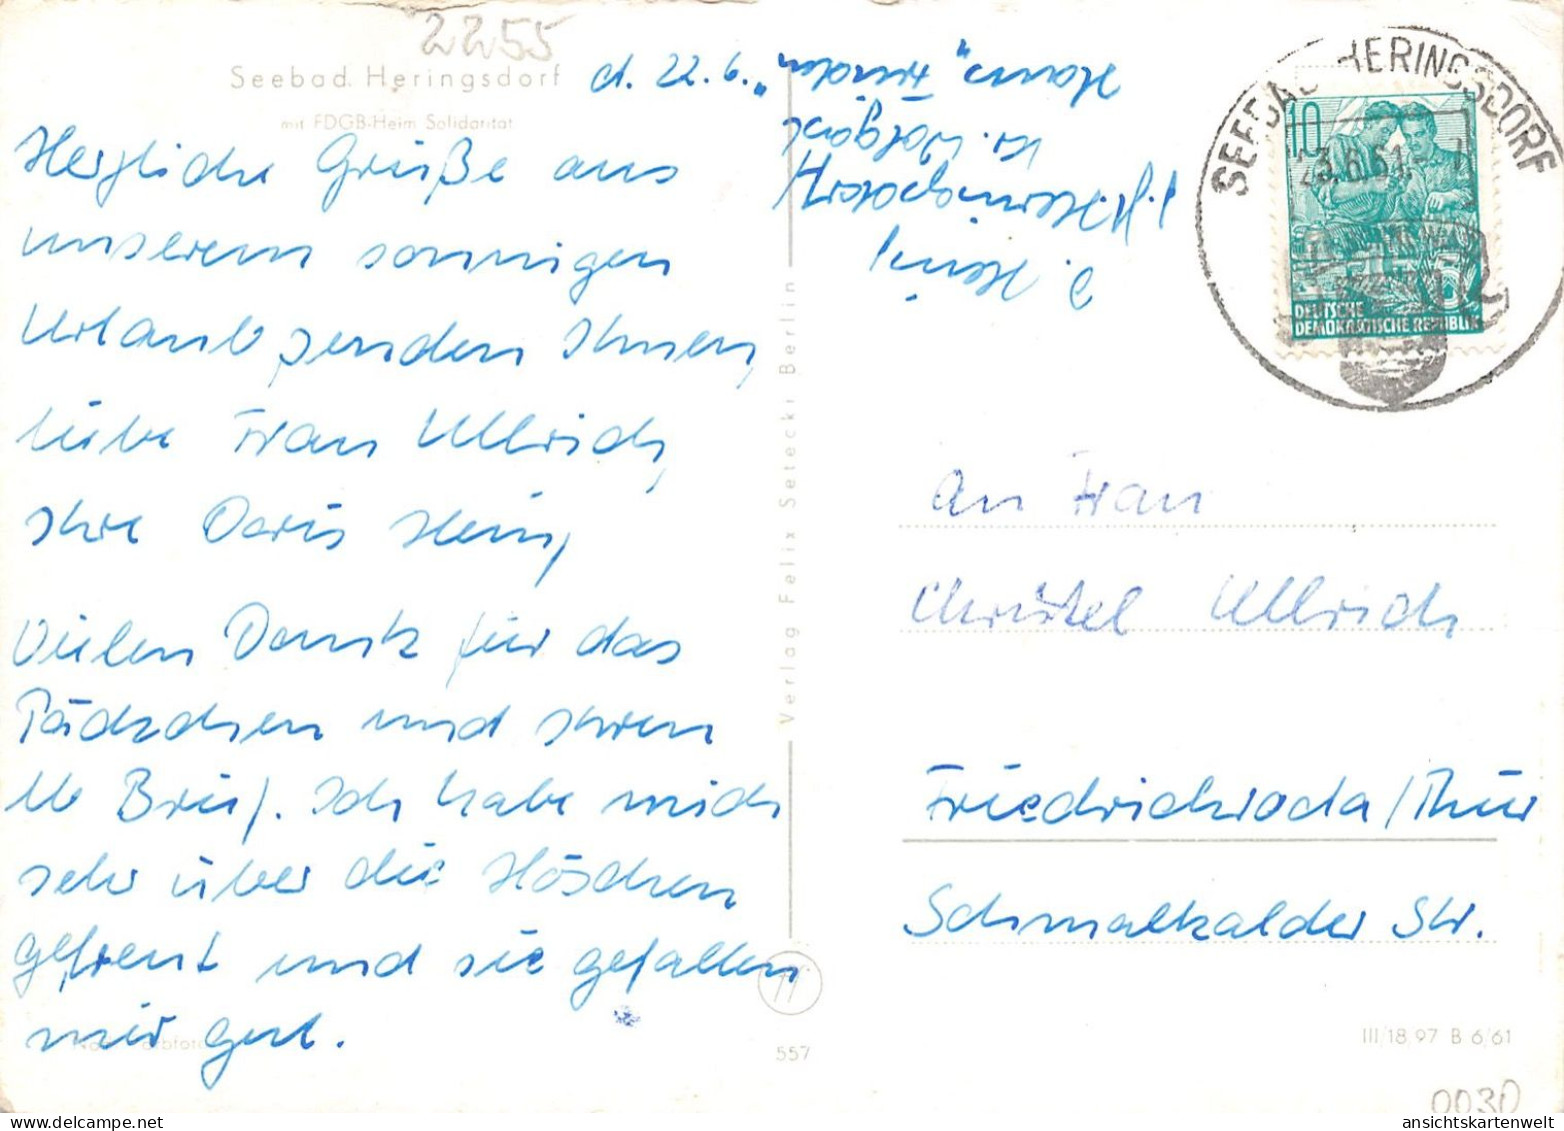 2255
Seebad Heringsdorf
mit FDGB-Heim Solidarität
d. 22.6.
Herzliche Grüße aus
unserem sonnigen
Urlaub senden Ihnen,
liebe Frau Ullrich,
Ihre Doris Heinz
Vielen Dank für das
Päckchen und Ihren
lb Brief. Ich habe mich
sehr über die Höschen
gefreut und sie gefallen
mir gut.
Verlag Felix Setecki Berlin
557
D. Heinz
z. Zt. Heringsdorf
Kr. Wolgast
Haus „Frieden“
SEEBAD HERINGSDORF
23.6.61.
10
5
DEUTSCHE
DEMOKRATISCHE REPUBLIK
An Frau
Christel Ullrich
Friedrichroda/Thür
Schmalkalder Str.
III/18/97 B 6/61
0030
ansichtskartenwelt